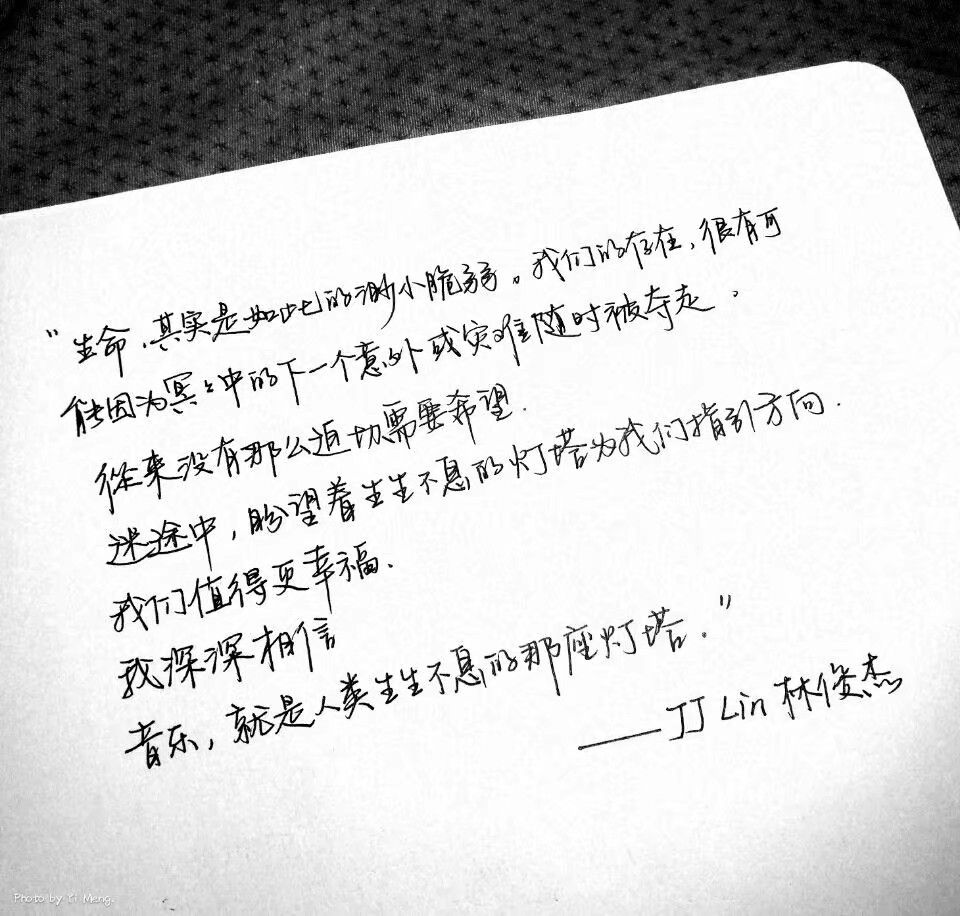 “生命,其实是如此的渺小脆弱。我们的存在,很有可
能因为冥々中的下一个意外或灾难随时被夺走。
从来没有那么迫切需要希望.
迷途中,盼望着生生不息的灯塔为我们指引方向.
我们值得更幸福.
我深深相信
音乐,就是人类生生不息的那座灯塔.”
——JJ Lin 林俊杰
Photo by Yi Meng.